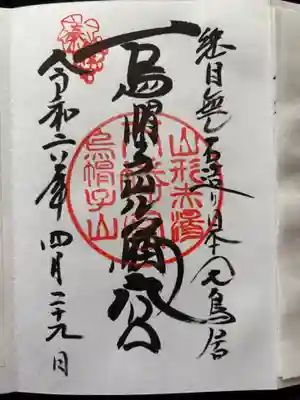 継目無石造り日本一大鳥居
烏帽子山八幡宮
令和六年四月二十九日
山形赤湯
烏帽子山